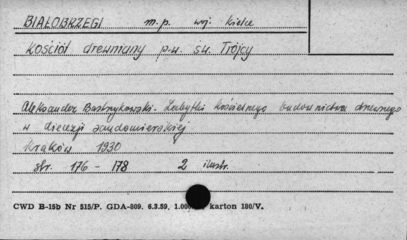 BIAŁOBRZEGI m.p. woj. kielce
kościół drewniany p.w. św. Trójcy
Aleksander Bastrzykowski. Zabytki kościelnego budownictwa drewnego
w diecezji sandomierskiej
Kraków 1930
str. 176 - 178 2 ilustr.
CWD B-15b Nr 515/P. GDA-809. 6.3.59, 1.000 karton 180/V.